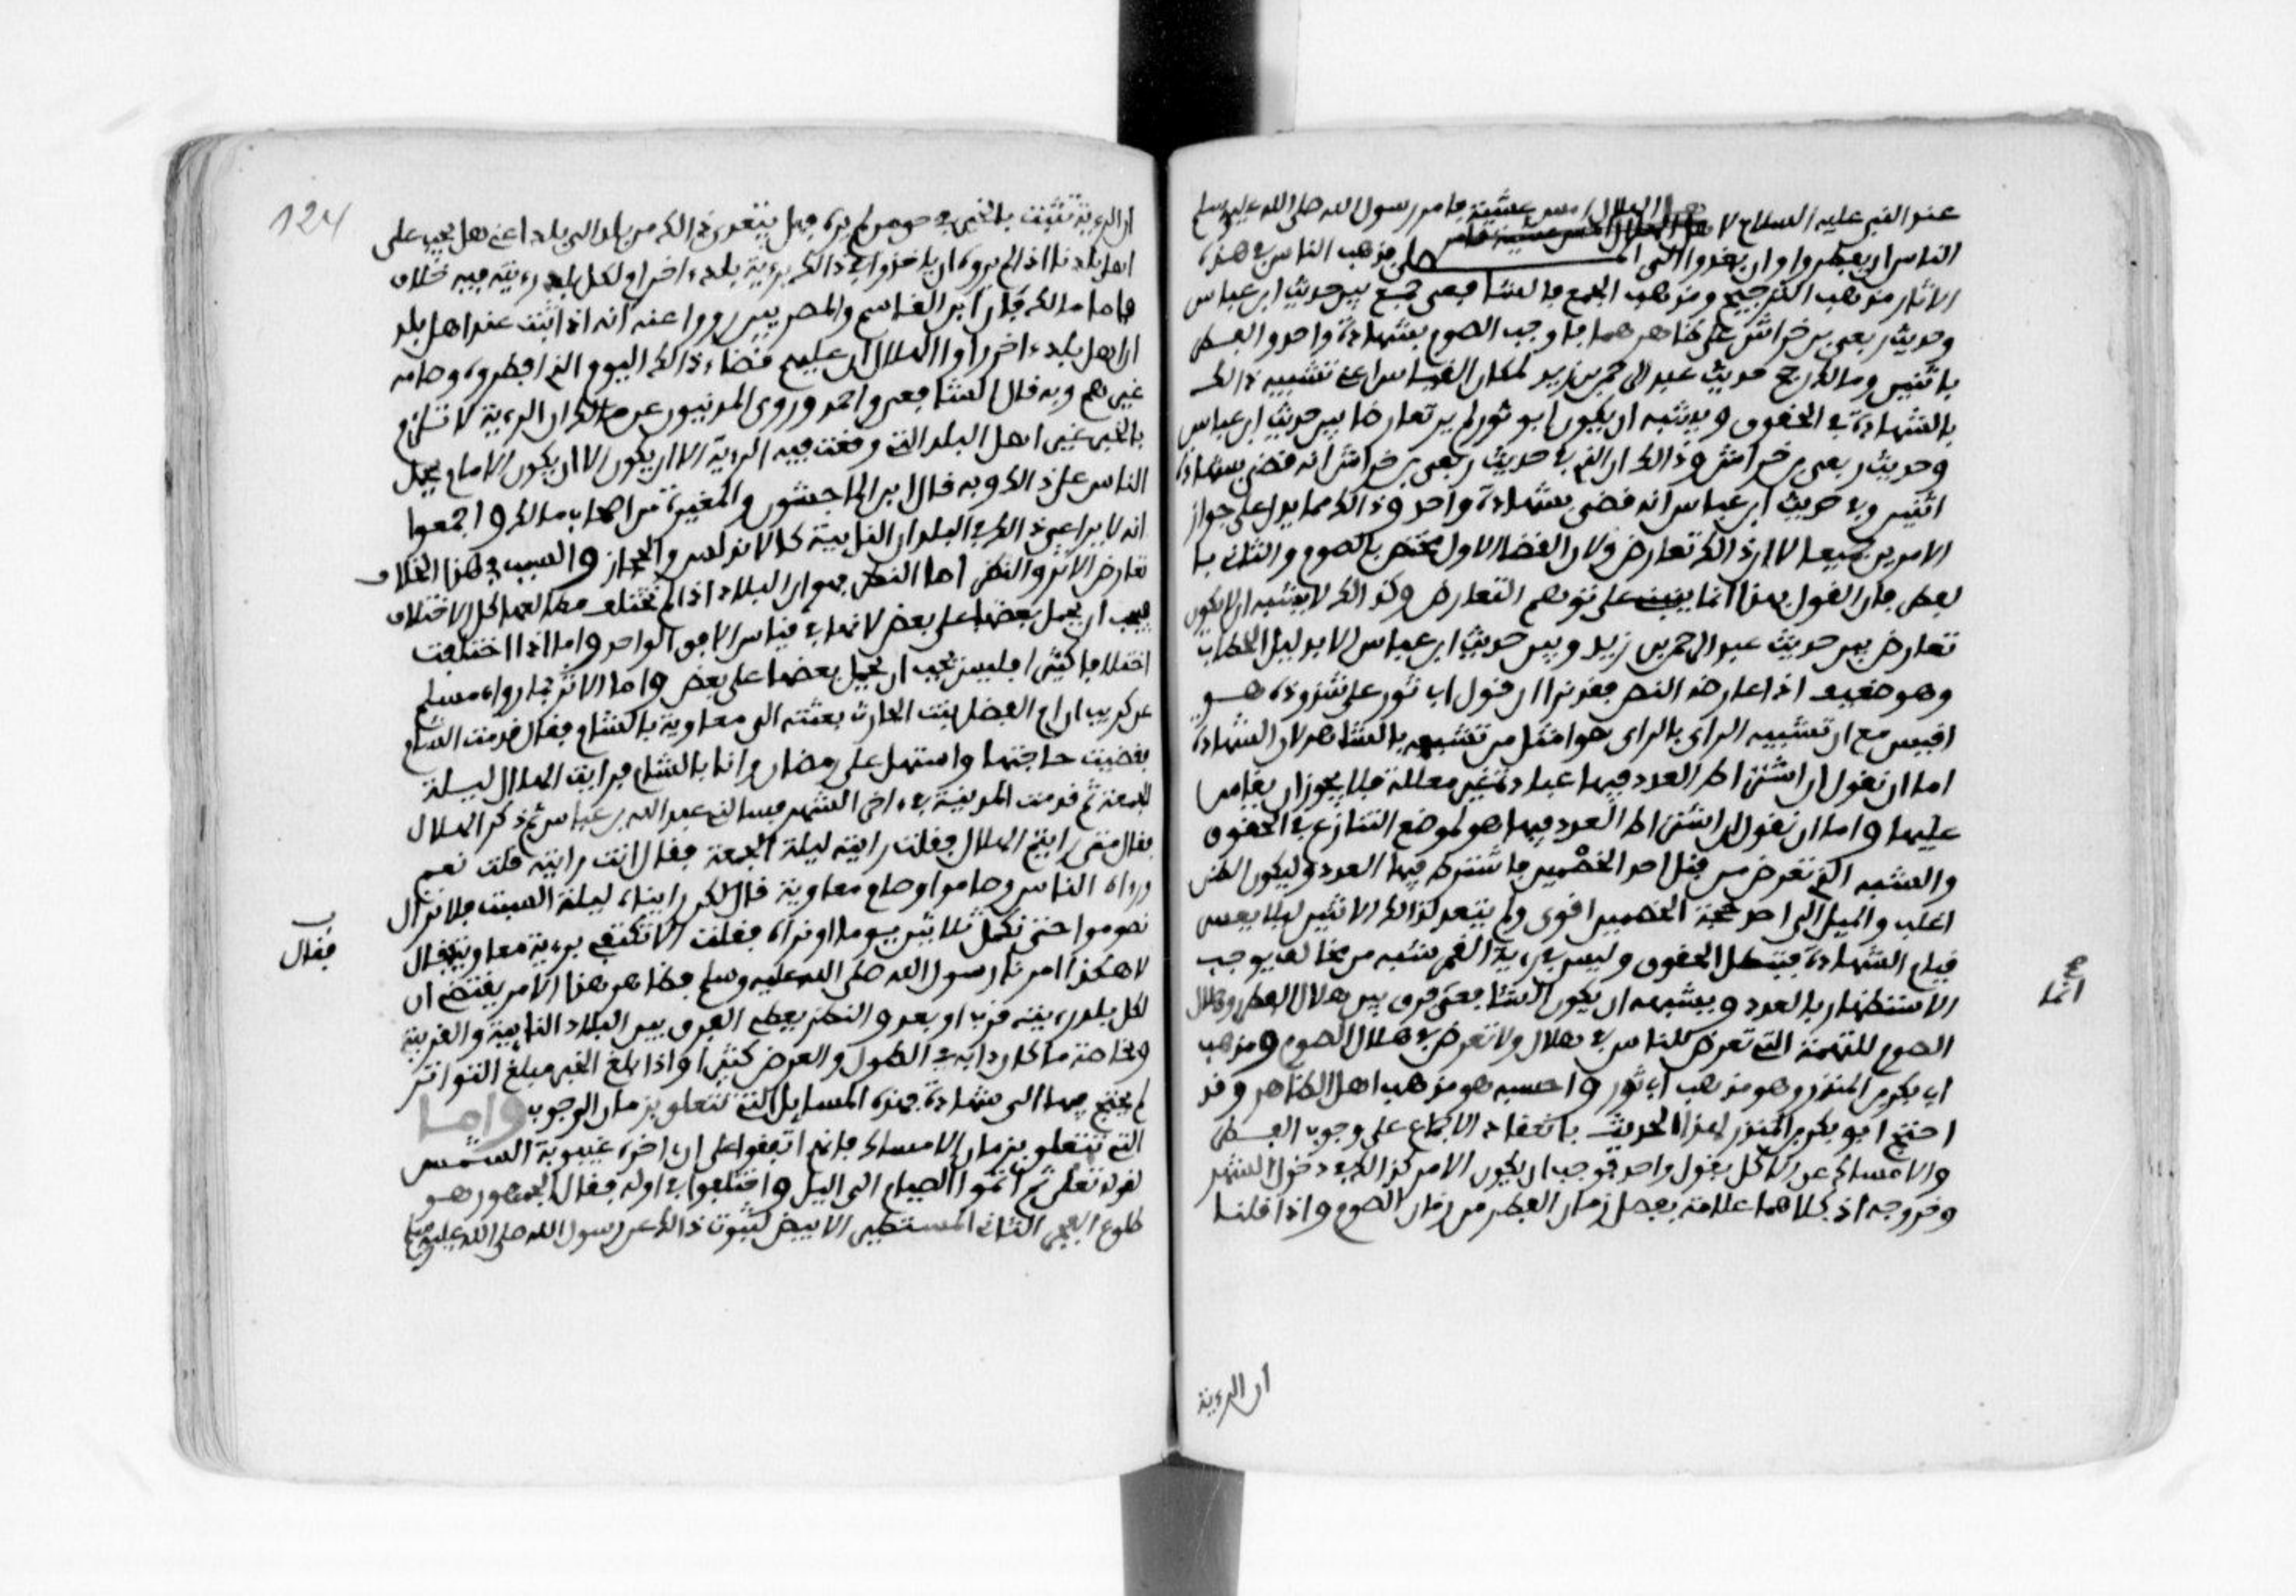 عند النبي عليه السلام لاهل الهلال امس عشية فامر رسول الله صلى الله عليه وسلم
الناس ان يفطروا وان يغدوا الى المصلى فذهب الناس في هذه
الاثار مذهب الترجيح ومذهب الجمع فالشافعي جمع بين حديث ابن عباس
وحديث ربعي بن خراش على ظاهرهما فاوجب الصوم بشهادة واحد والفطر
باثنين ومالك رجح حديث عبد الرحمن بن زيد لمكان القياس اعني تشبيه ذالك
بالشهادة في الحقوق ويشبه ان يكون ابو ثور لم ير تعارضا بين حديث ابن عباس
وحديث ربعي بن خراش وذالك ان الذي في حديث ربعي بن خراش انه قضى بشهادة
اثنين وفي حديث ابن عباس انه قضى بشهادة واحد وذالك مما يدل على جواز
الامرين جميعا لا ان ذالك تعارض ولا ان القضا الاول مختص بالصوم والثاني با
لفطر فان القول بهذا انما ينبني على توهم التعارض وكذالك لا يشبه ان لا يكون
تعارض بين حديث عبد الرحمن بن زيد وبين حديث ابن عباس الا بدليل الخطاب
وهو ضعيف اذا عارضه النص فقد نرا ان قول ابي ثور على شذوذه هو
اقيس مع ان تشبيه الراى بالراى هو امثل من تشبيهه بالشاهد لان الشهادة
اما ان نقول ان اشتراط العدد فيها عبادة غير معللة فلا يجوز ان يقاس
عليها واما ان نقول ان اشتراط العدد فيها هو لموضع التنازع في الحقوق
والشبه التي تعرض من قبل احد الخصمين فاشترط فيها العدد وليكون الظن
اغلب والميل الى احد حجة الخصمين اقوى ولم يتعد لذالك الاثنين ليلا يعسر
قيام الشهادة فتبطل الحقوق وليس في رؤية القمر شبه من مخالف يوجب
الاستظهار بالعدد ويشبه ان يكون الشافعي فرق بين هلال الفطر وهلال
الصوم للتهمة التي تعرض للناس في هلال ولا تعرض في هلال الصوم ومذهب
ابي بكر بن المنذر وهو مذهب ابي ثور واحسبه هو مذهب اهل الظاهر وقد
احتج ابو بكر بن المنذر لهذا الحديث بانعقاد الاجماع على وجوب الفطر
والامساك عن الاكل بقول واحد فوجب ان يكون الامر كذالك في دخول الشهر
وخروجه اذ كلاهما علامة بفصل زمان الفطر من زمان الصوم واذا قلنا
صح
انما
ان الرؤية
124
ان الرؤية تثبت بالخبر في حق من لم يره فهل يتعدى ذالك من بلد الى بلد اعني هل يجب على
اهل بلد ما اذا لم يروه ان ياخذوا في ذالك برؤية بلد اخر ام لكل بلد رؤيته فيه خلاف
فاما مالك فان ابن القاسم والمصريين رووا عنه انه اذا ثبت عند اهل بلد
ان اهل بلد اخر راوا الهلال ان عليهم قضاء ذالك اليوم الذي افطروه وصامه
غيرهم وبه قال الشافعي واحمد وروى المدنيون عن مالك ان الرؤية لا تلزم
بالخبر غير اهل البلد الذي وقعت فيه الرؤية الا ان يكون الا ان يكون الامام يحمل
الناس على ذالك وبه قال ابن الماجشون والمغيرة من اصحاب مالك واجمعوا
انه لا يراعى ذالك في البلدان النايية كالاندلس والحجاز والسبب في هذا الخلاف
تعارض الاثر والنظر اما النظر فهو ان البلاد اذا لم تختلف مطالعها كل الاختلاف
فيجب ان يحمل بعضها على بعض لانها في قياس الافق الواحد واما اذا اختلفت
اختلافا كثيرا فليس يجب ان يحمل بعضها على بعض واما الاثر فما رواه مسلم
عن كريب ان ام الفضل بنت الحارث بعثته الى معاوية بالشام فقال قدمت الشام
فقضيت حاجتها واستهل على رمضان وانا بالشام فرايت الهلال ليلة
الجمعة ثم قدمت المدينة في اخر الشهر فسالني عبد الله بن عباس ثم ذكر الهلال
فقال متى رايتم الهلال فقلت رايته ليلة الجمعة فقال انت رايته قلت نعم
وراه الناس وصاموا وصام معاوية قال لكن رايناه ليلة السبت فلا نزال
نصوموا حتى نكمل ثلاثين يوما او نراه فقلت الا تكتفي برؤية معاوية فقال
لا هكذا امرنا رسول الله صلى الله عليه وسلم فظاهر هذا الامر يقتضي ان
لكل بلد رؤيته قرب او بعد والنظر يعطي الفرق بين البلاد النايية والقريبة
وبخاصة ما كان نايه في الطول والعرض كثيرا واذا بلغ الخبر مبلغ التواتر
لم يحتج فيها الى شهادة فهذه المسايل التي تتعلق بزمان الوجوب واما
التي تتعلق بزمان الامساك فانهم اتفقوا على ان اخره غيبوبة الشمس
لقوله تعلى ثم اتموا الصيام الى اليل واختلفوا في اوله فقال الجمهور هو
طلوع الفجر الثاني المستطير الابيض لثبوت ذالك عن رسول الله صلى الله عليه وسلم
فقال